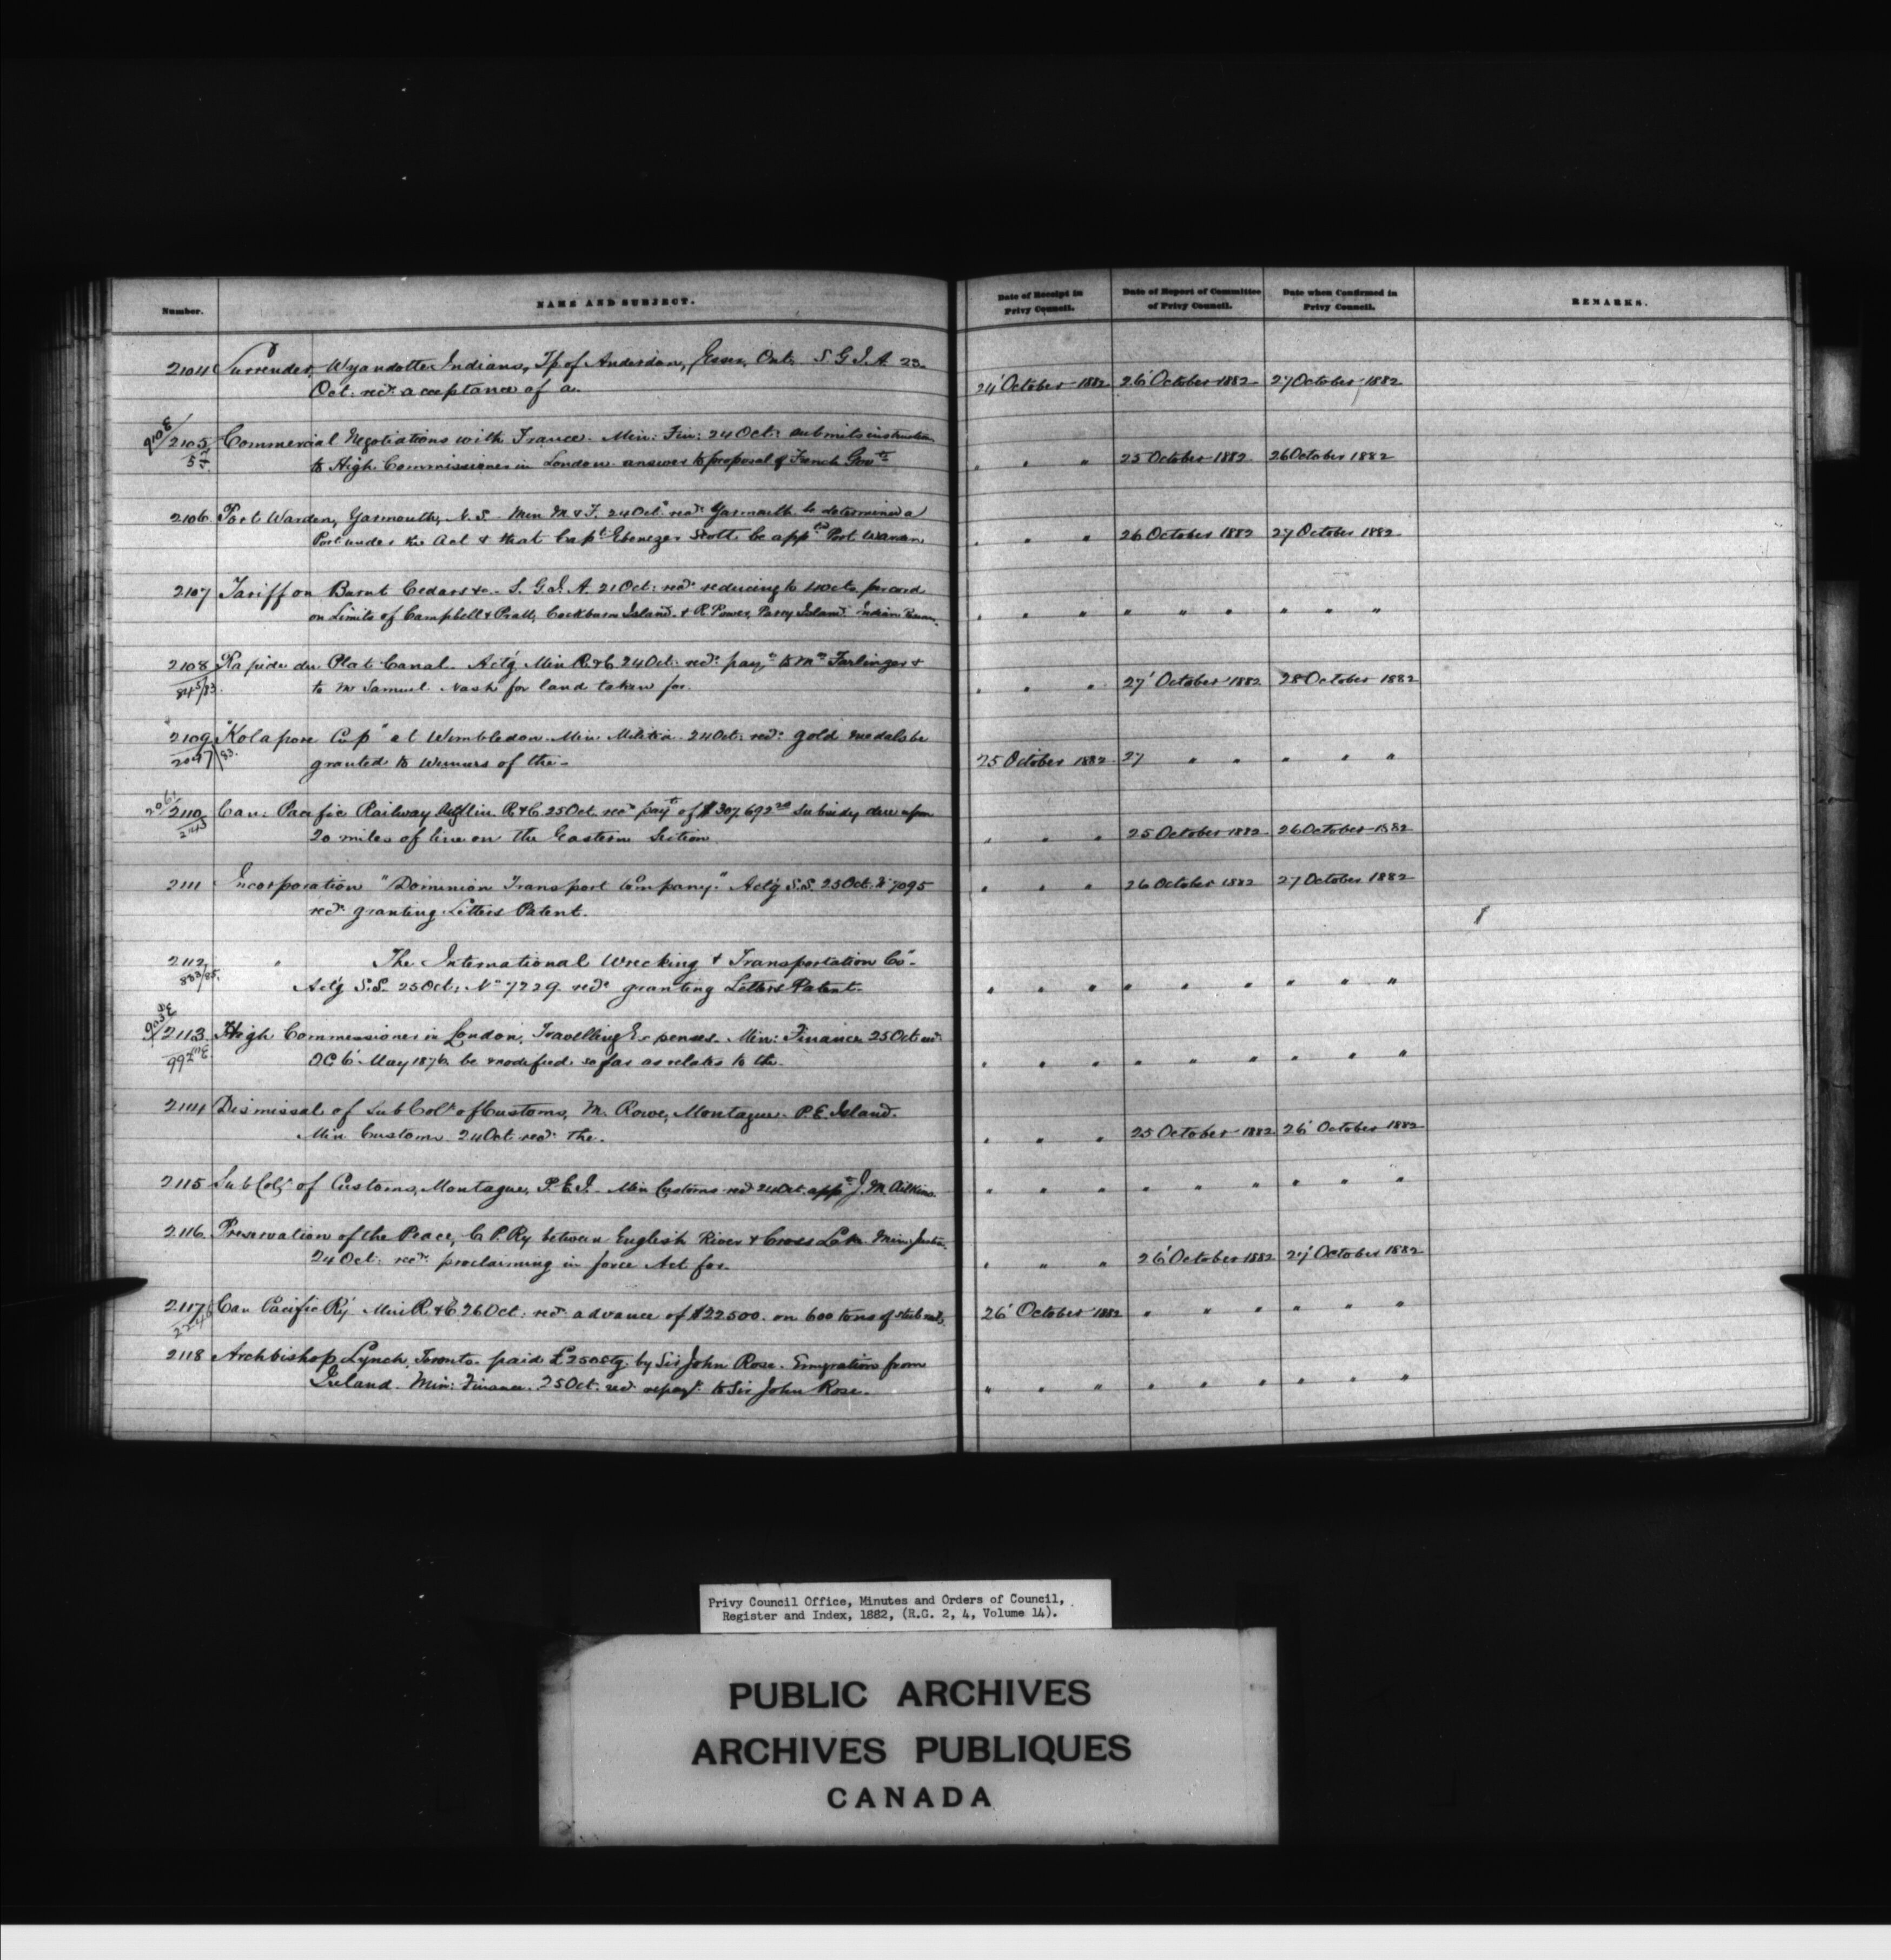 Number. NAME AND SUBJECT. Date of Receipt in Privy Council. Date of Report of Committee of Privy Council. Date when Confirmed in Privy Council. REMARKS.
2104 Surrender, Wyandotte Indians, Tp of Anderdon, Essex, Ont. S G I A 23
Oct: recd. acceptance of a. 24' October 1882 26' October 1882 27 October 1882
910E/2105 Commercial Negotiations with France. Min: Fin: 24 Oct: submits instruction
to High Commissioner in London answer to proposal of French Govt. " " " 25 October 1882 26 October 1882
2106 Port Warden, Yarmouth, N.S. Min M & F. 24 Oct: recd. Yarmouth be determined a
Port under the Act & that Capt. Ebenezer Scott be appted Port Warden " " " 26 October 1882 27 October 1882
2107 Tariff on Burnt Cedars &c. S. G. I. A. 21 Oct: recd. reducing to cts per cord
on Limits of Campbell & Pratt, Cockburn Island & R. Power, Parry Island Indian " " " " " " " " "
2108 Rapide du Plat Canal. Actg Min R. & C. 24 Oct: recd. payt. to Farlinger &
845/83. to Mr Samuel Nash for land taken for. " " " 27' October 1882 28 October 1882
2109 "Kolapore Cup" at Wimbledon. Min. Militia 24 Oct: recd. gold medals be
83. granted to Winners of the - 25 October 1882 27 " " " " "
2110 Can. Pacific Railway Actg Min R & C. 25 Oct. recd payt of $307,692 20 Subsidy due upon
20 miles of line on the Eastern Section " " " 25 October 1882 26 October 1882
2111 Incorporation "Dominion Transport Company." Actg S.S. 23 Oct: No 7095 " " " 26 October 1882 27 October 1882
recd. granting Letters Patent.
2112 " The International Wrecking & Transportation Co".
883/85. Actg S.S. 25 Oct: No 7229 recd. granting Letters Patent. " " " " " " " " "
2113 High Commissioner in London, Travelling Expenses. Min: Finance 25 Oct recd.
992E OC 6' May 1876 be modified so far as relates to the. " " " " " " " " "
2114 Dismissal of Sub Colr of Customs, M. Rowe, Montague P.E. Island.
Min Customs 24 Oct recd. the. " " " 25 October 1882 26' October 1882
2115 Sub Colr of Customs, Montague, P.E.I. Min Customs recd 24 Oct. appt J. M. Aitkins. " " " " " " " " "
2116 Preservation of the Peace, C. P. Ry between English River & Cross Lake Min: Justice
24 Oct: recd. proclaiming in force Act for. " " " 26' October 1882 27' October 1882
2117 Can Pacific Ry Min R. & C. 26 Oct: recd. advance of $22500. on 600 tons of steel rails. 26' October 1882 " " " " " "
2118 Archbishop Lynch, Toronto. paid £250 stg. by Sir John Rose. Emigration from
Ireland. Min: Finance. 25 Oct: recd. repayt. to Sir John Rose. " " " " " " " " "
Privy Council Office, Minutes and Orders of Council,
Register and Index, 1882, (R.G. 2, 4, Volume 14).
PUBLIC ARCHIVES
ARCHIVES PUBLIQUES
CANADA